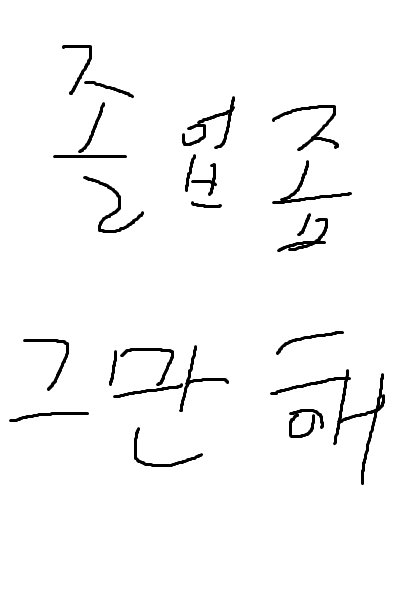 졸업좀
그만해